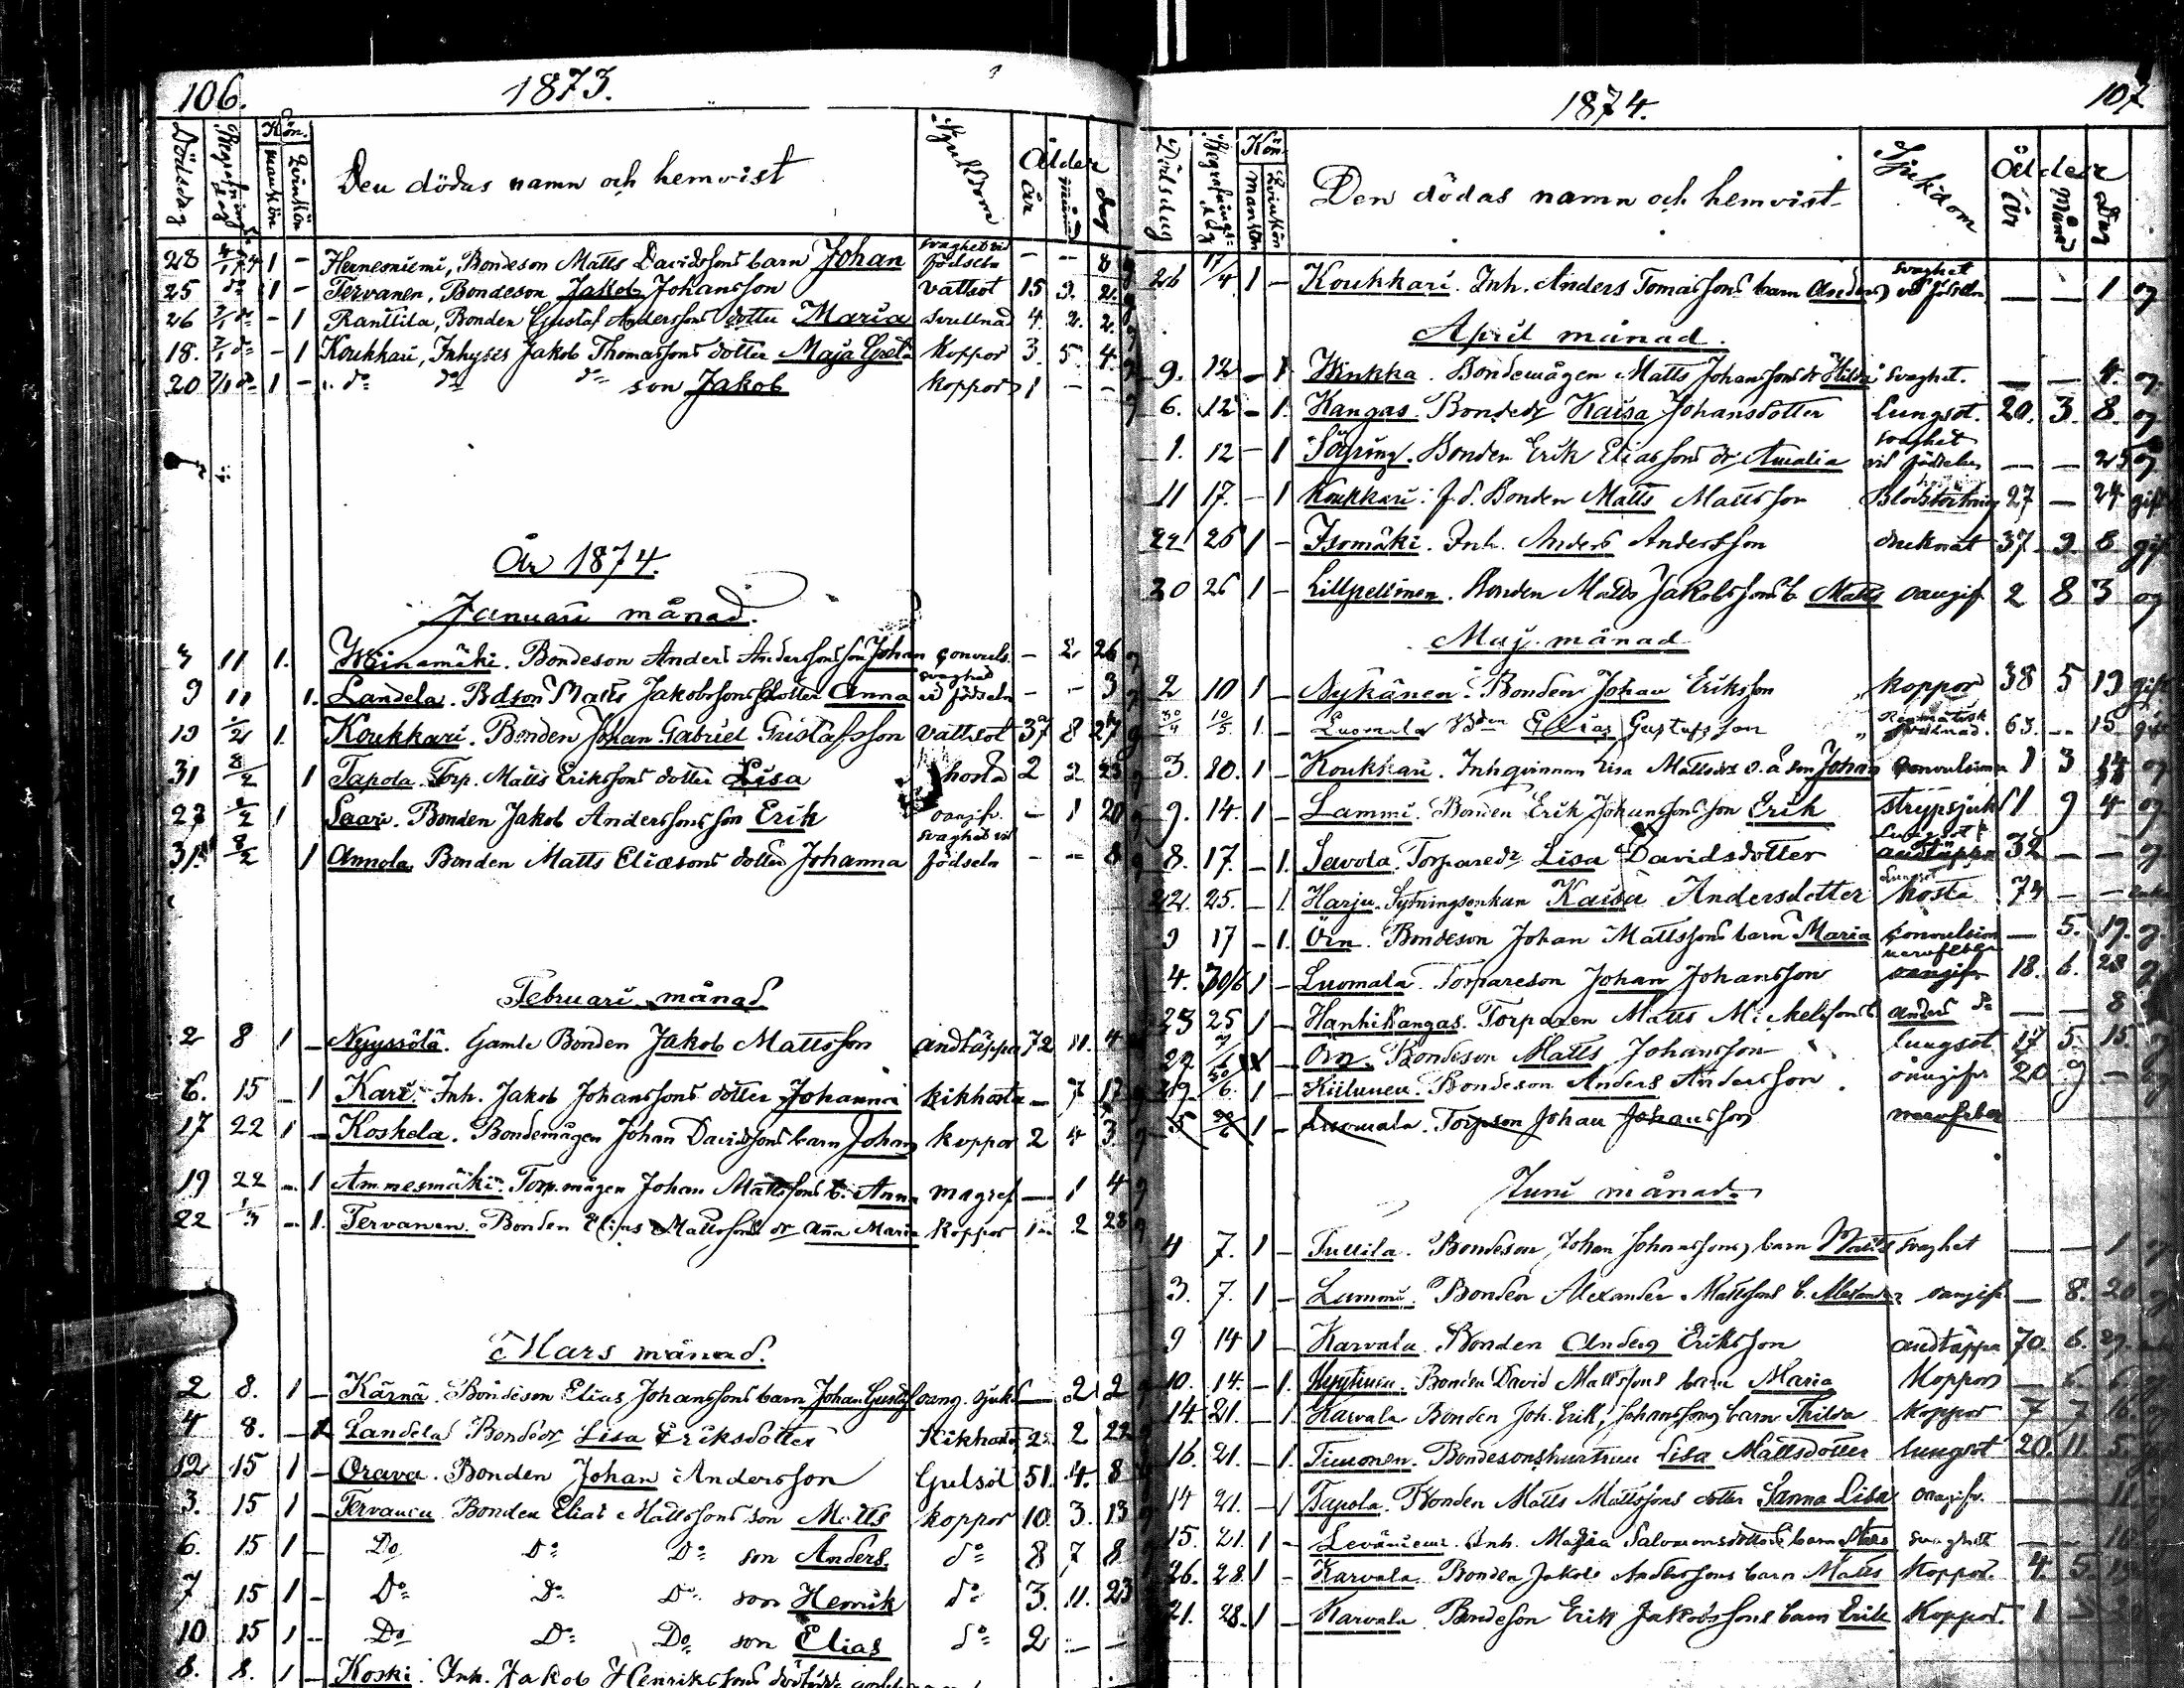 106.
1873.
Dödsdag Begrafningsdag Kön. mankön qvinkön Den dödas namn och hemvist Sjukdom Ålder år månad dag
28 4/1 74 1 – Hernesniemi, Bondeson Matts Davidssons barn Johan svaghet vid födseln – – 8 g
25 do 1 – Tervanen, Bondeson Jakob Johansson Vattsot 15 9. 2. g
26 do – 1 Ranttila, Bonden Gustaf Anderssons dotter Maria svullnad 4. 2. 2. g
18. do – 1 Koukkari, Inhyses Jakob Thomassons dotter Maja Greta Koppor 3. 5. 4. g
20 do 1 – do do do son Jakob koppor 1 – –
År 1874.
Januari månad.
11 1. Weinamäki. Bondeson Anders Anderssons son Johan convuls. – 2. 26 g
9 11 1. Landela. Bdson Matts Jakobssons dotter Anna svaghet vid födseln – – 3 g
19 1/2 1. Koukkari. Bonden Johan Gabriel Gustafsson Vattsot 37 8 27 g
31 8/2 1 Tapola. Torp. Matts Erikssons dotter Lisa hosta 2 2 23 g
23 1/2 1 Saari. Bonden Jakob Anderssons son Erik oangifv. – 1 20 g
31. 8/2 1 Annola. Bonden Matts Eliassons dotter Johanna svaghet vid födseln – – 8 g
Februari månad
2 8 1 – Nyyssölä. Gamle Bonden Jakob Mattsson andtäppa 72 11. 4
6. 15 – 1 Kari. Inh. Jakob Johanssons dotter Johanna kikhosta – 7 12 g
17 22 1 – Koskela. Bondemågen Johan Davidssons barn Johan koppor 2 4 3 g
19 22 – 1 Ammesmäki. Torp.mågen Johan Mattssons b. Anna magref – 1 4 g
22 1/3 – 1. Tervanen. Bonden Elias Mattssons dr Anna Maria koppor 1 2 28 g
Mars månad.
2 8. 1 – Kärnä. Bondeson Elias Johanssons barn Johan Gustaf oang. sjukd – 2 2
4 8. – 1 Landela Bondedr Lisa Eriksdotter Kikhosta 2 22
12 15 1 – Orava. Bonden Johan Andersson Gulsot 51. 4. 8
3. 15 1 – Tervanen Bonden Elias Mattssons son Matts koppor 10. 3. 13
6. 15 1 – Do Do Do son Anders. do 8 7 8
7 15 1 – Do Do Do son Henrik do 3. 11. 23
10 15 1 – Do Do Do son Elias do 2 – –
8. 8. 1 – Koski. Inh. Jakob Henrikssons dödfödde
107
1874.
Dödsdag Begrafnings-dag Kön. Mankön Qvinkön Den dödas namn och hemvist Sjukdom Ålder År Månad Dag
26 4 1 – Koukkari. Inh. Anders Tomassons barn Anders svaghet vid födseln – – 1 og
April månad.
9. 12 – 1 Winkka. Bondemågen Matts Johanssons dr Hilda svaghet. – – 4. og.
6. 12 – 1. Kangas. Bondedr Kaisa Johansdotter Lungsot. 20. 3. 8. og
1. 12 – 1 Söyring. Bonden Erik Eliassons dr Amalia svaghet vid födseln – – 25 og
11 17. – 1 Koukkari. f.d. Bonden Matts Mattsson 27 – 24 gift
22 26 1 – Isomäki. Inh. Anders Andersson drunknat 37 9. 8. gift
20 26 1 – Lillpelimen. Bonden Matts Jakobssons b. Matts oangif. 2 8 3 og
Maj månad
2 10 1 – Nykänen. Bonden Johan Eriksson koppor 38 5 19 gift
30/4 10/5 1. Luomala Bden Elias Gustafsson 63. – 15. gift
3. 10. 1 – Koukkari. Inhqvinnan Lisa Mattsdrs o.ä son Johan convulsion 1 3 14 og
9. 14. 1 – Lammi. Bonden Erik Johanssons son Erik strypsjuk 1 9 4 og
8. 17. – 1. Savola. Torparedr Lisa Davidsdotter Lungsot andtäppa 32 – – og
22. 25. – 1. Harju. Sytningsenkan Kaisa Andersdotter Lungsot hosta 74 – – enka
9 17 – 1. Örn. Bondeson Johan Mattssons barn Maria convulsion – 5. 19. g.
4. 1 – Luomala. Torpareson Johan Johansson nervfeber oangifv 18. 6. 28 g
23 25 1 – Hanhikangas. Torparen Matts Michelssons – – 8
27 Örn. Bondeson Matts Johansson lungsot 17 5. 15.
29 6. 1 – Kiilunen. Bondeson Anders Andersson. oangifv 20 9 –
5 1 – Luomala. Torpson Johan Johansson nervfeber
Juni månad
4 7. 1 – Tuttila. Bondeson Johan Johanssons barn Matts svaghet – – 1
3. 7. 1 – Lammi. Bonden Alexander Mattssons b. Alexander oangifv – 8. 20
9 14 1 – Karvala. Bonden Anders Eriksson andtäppa 70. 6.
10. 14. – 1. Nyytinen. Bonden David Mattssons barn Maria Koppor – 6
14. 21. – 1. Karvala Bonden Joh. Erik Johanssons barn Thilda koppor 7 7 16.
16. 21. – 1. Timonen. Bondesonshustrun Lisa Mattsdotter lungsot 20. 11. 5.
14 21. – 1 Tapola. Bonden Matts Mattssons dotter Sanna Lisa oangifv. – – 11
15. 21. 1 – Levänen. Inh. Maria Salomonsdotters barn svaghet – –
26. 28. 1 – Karvala. Bonden Jakob Anderssons barn Matts Koppor. 4. 5. 19
21. 28. 1 – Karvala. Bondeson Erik Jakobssons barn Erik Koppor. 1